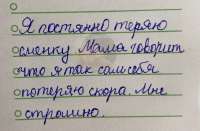 Я постоянно теряю
сменку Мама говорит
что я так сам себя
потеряю скора. Мне
стромно.